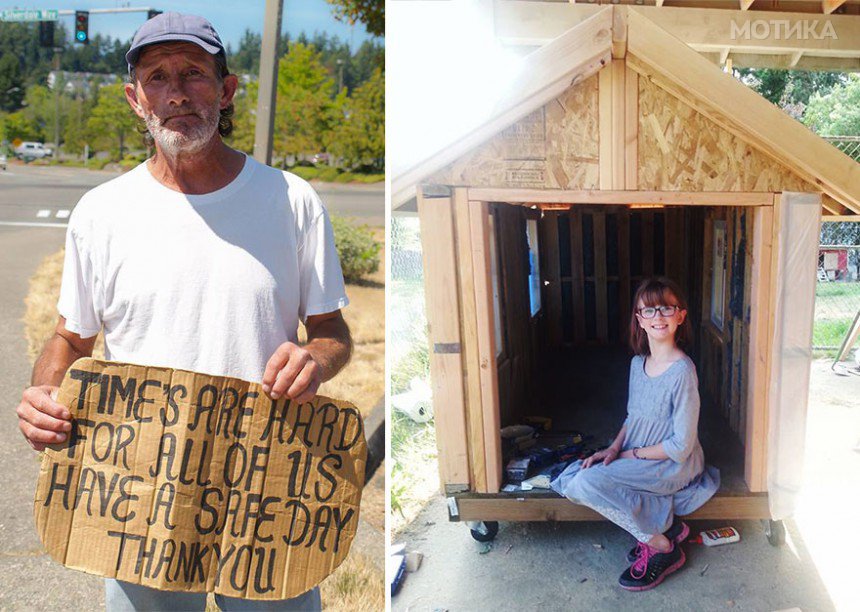 Silverdale Way
МОТИКА
TIME'S ARE HARD
FOR ALL OF US
HAVE A SAFE DAY
THANK YOU